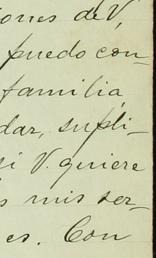 iones de V,
puedo con-
familia,
dar, supli-
si V. quiere
s mis ser-
es. Con